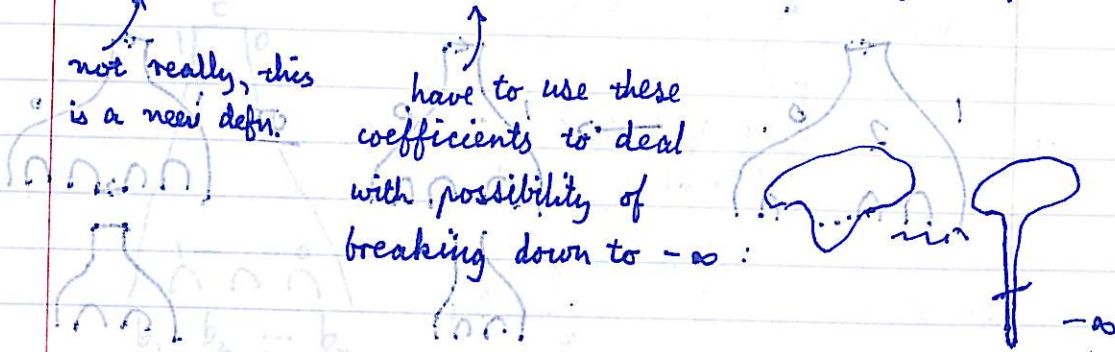 not really, this
is a new defn.
have to use these
coefficients to deal
with possibility of
breaking down to -∞ :
-∞